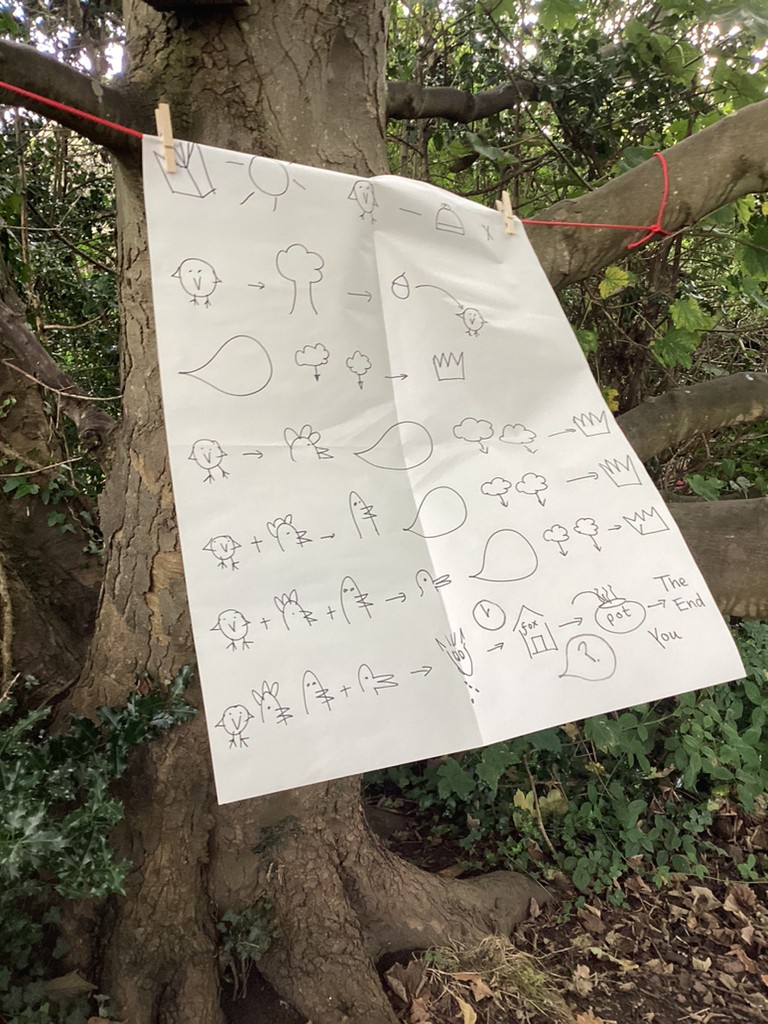 x
The
fox
pot
End
?
You